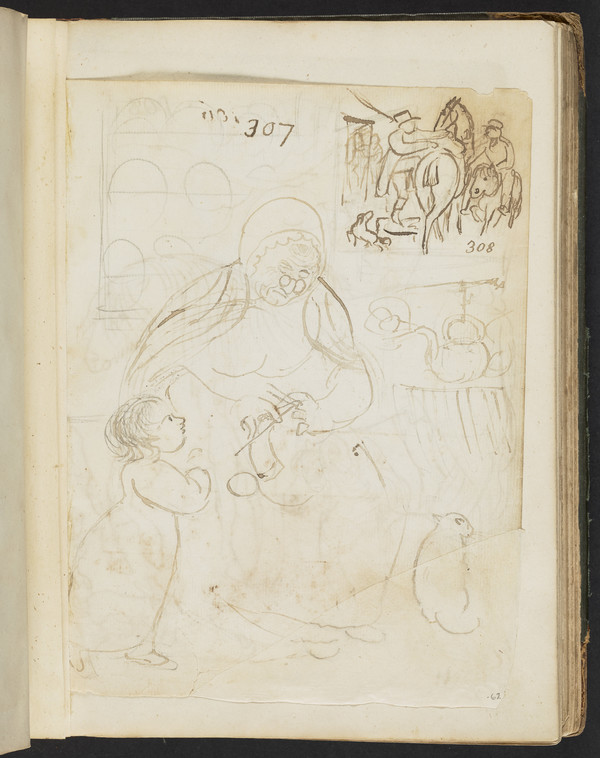 307
308
62